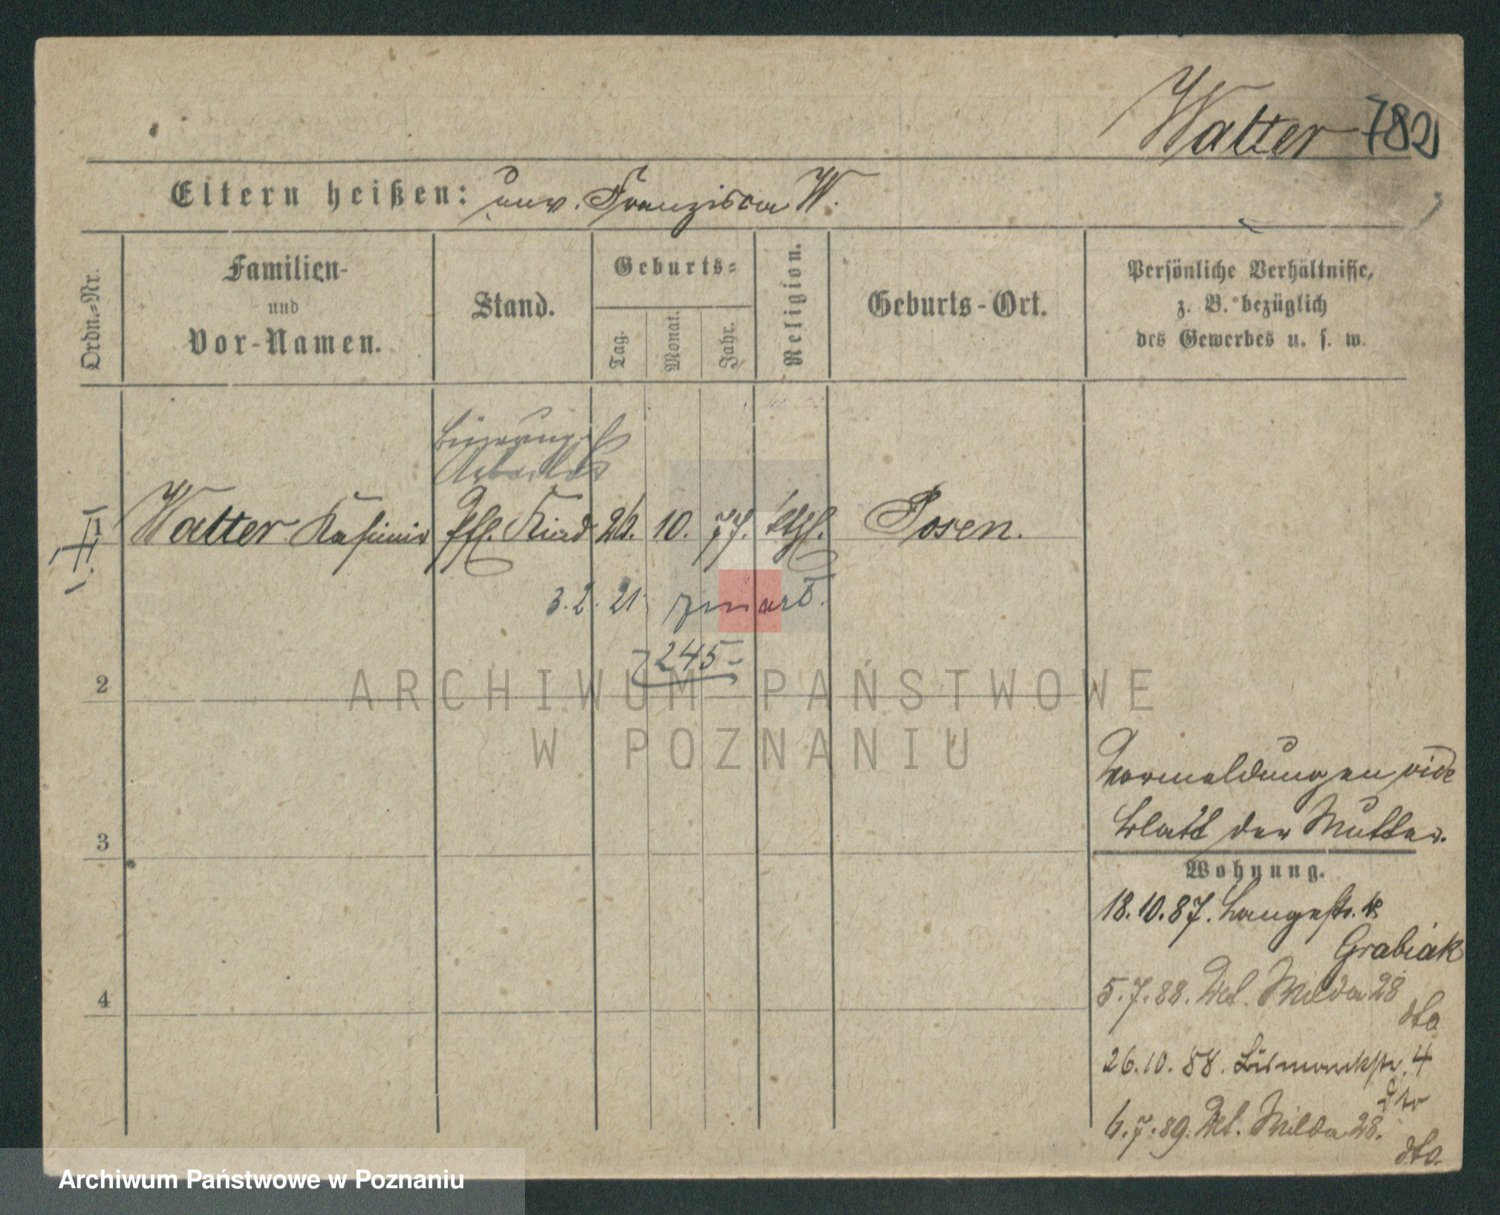 Walter 782
Eltern heißen: unv. Franziska W.
Ordn.-Nr.
Familien-
und
Vor-Namen.
Stand.
Geburts-
Tag.
Monat.
Jahr.
Religion.
Geburts-Ort.
Persönliche Verhältnisse,
z. B. bezüglich
des Gewerbes u. s. w.
1 Walter Kasimir Pfl. Kind 26. 10. 77. kth. Posen.
3. 2. 21 zmarł.
245
2
ARCHIWUM PAŃSTWOWE
W POZNANIU
Vormeldungen vide
Blatt der Mutter.
3
Wohnung.
18.10.87. Langestr.
Grabiak
4
5.7.88. Wilda 28
dto
26.10.88. Bismarckstr. 4
dto
6.7.89. Wilda 28.
dto.
Archiwum Państwowe w Poznaniu